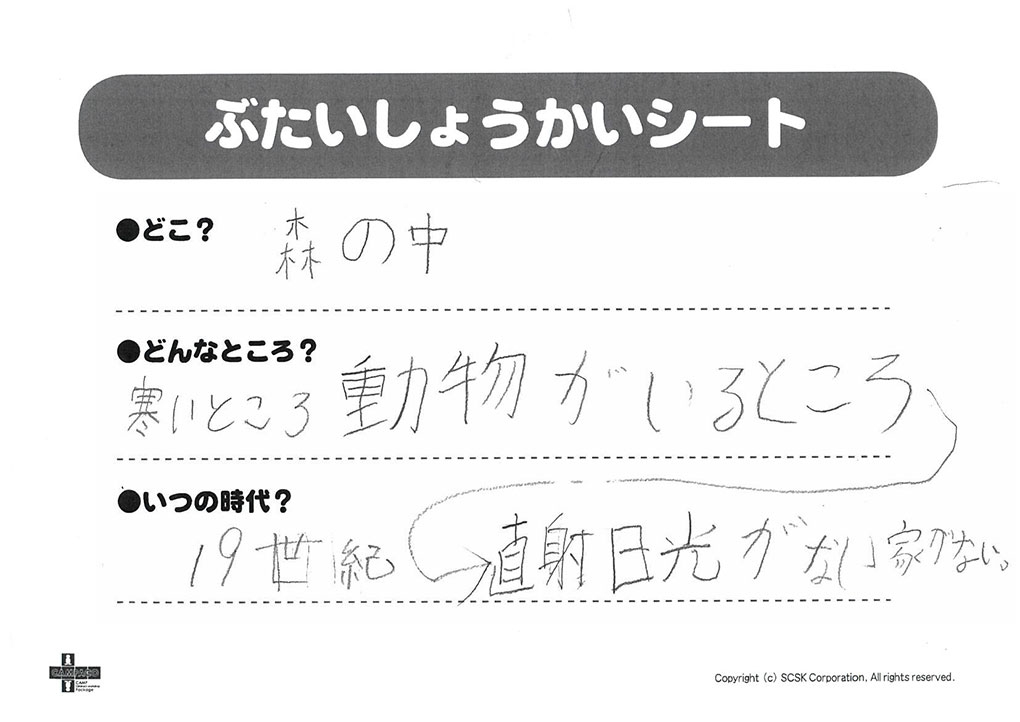 ぶたいしょうかいシート
●どこ?
森の中
●どんなところ?
寒いところ 動物がいるところ
●いつの時代?
19世紀 直射日光がない 家がない。
Copyright (c) SCSK Corporation. All rights reserved.